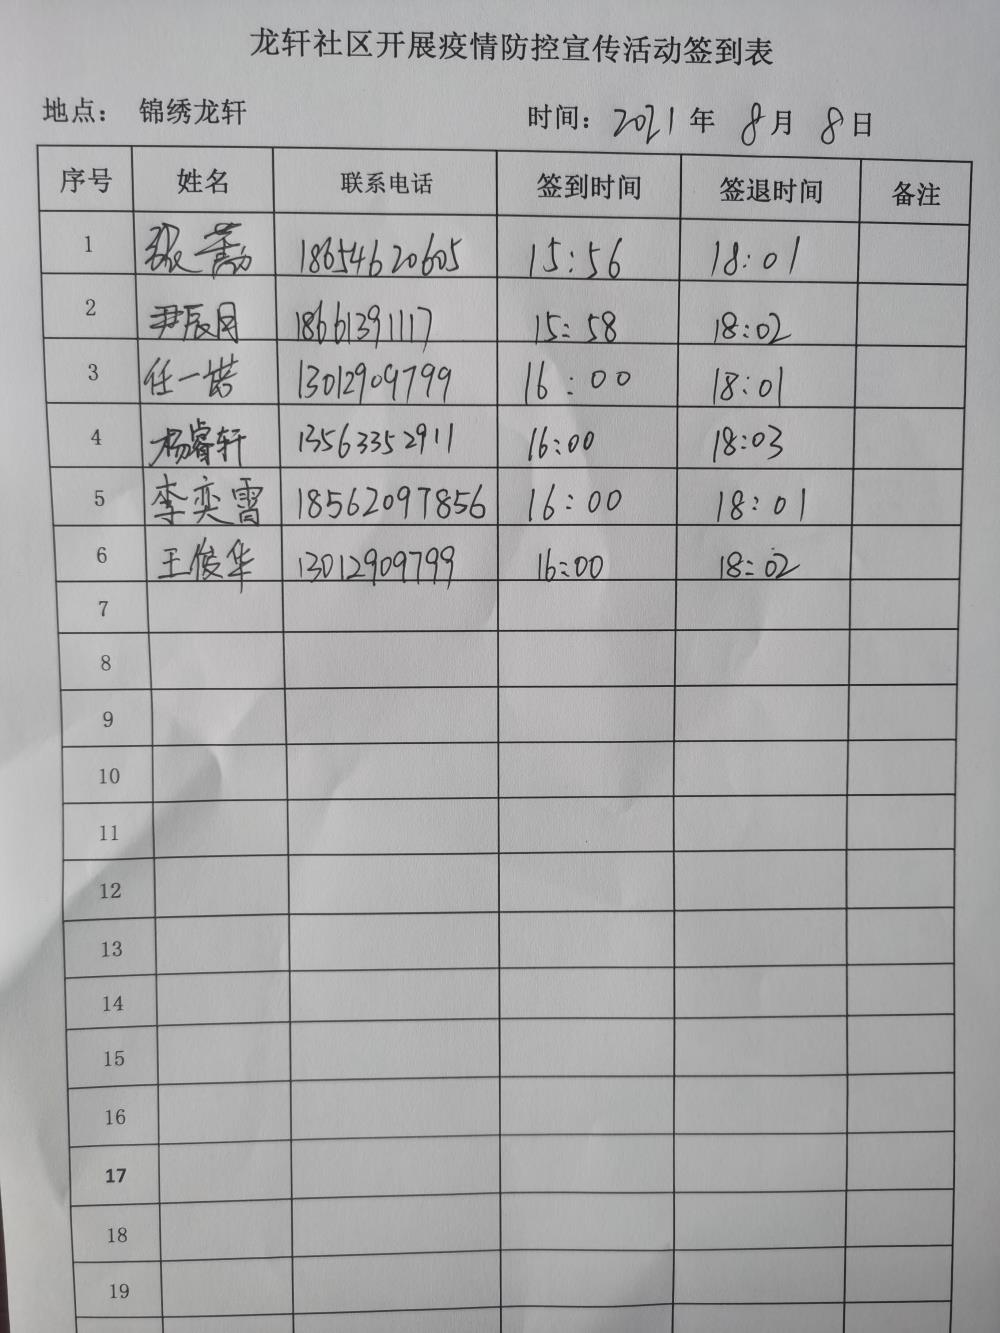 龙轩社区开展疫情防控宣传活动签到表
地点： 锦绣龙轩 时间：2021年 8月 8日
序号 姓名 联系电话 签到时间 签退时间 备注
1 张 18654620605 15:56 18:01
2 尹辰月 18661391117 15:58 18:02
3 任一诺 13012909799 16:00 18:01
4 杨睿轩 13563352911 16:00 18:03
5 李奕霄 18562097856 16:00 18:01
6 王俊华 13012909799 16:00 18:02
7
8
9
10
11
12
13
14
15
16
17
18
19